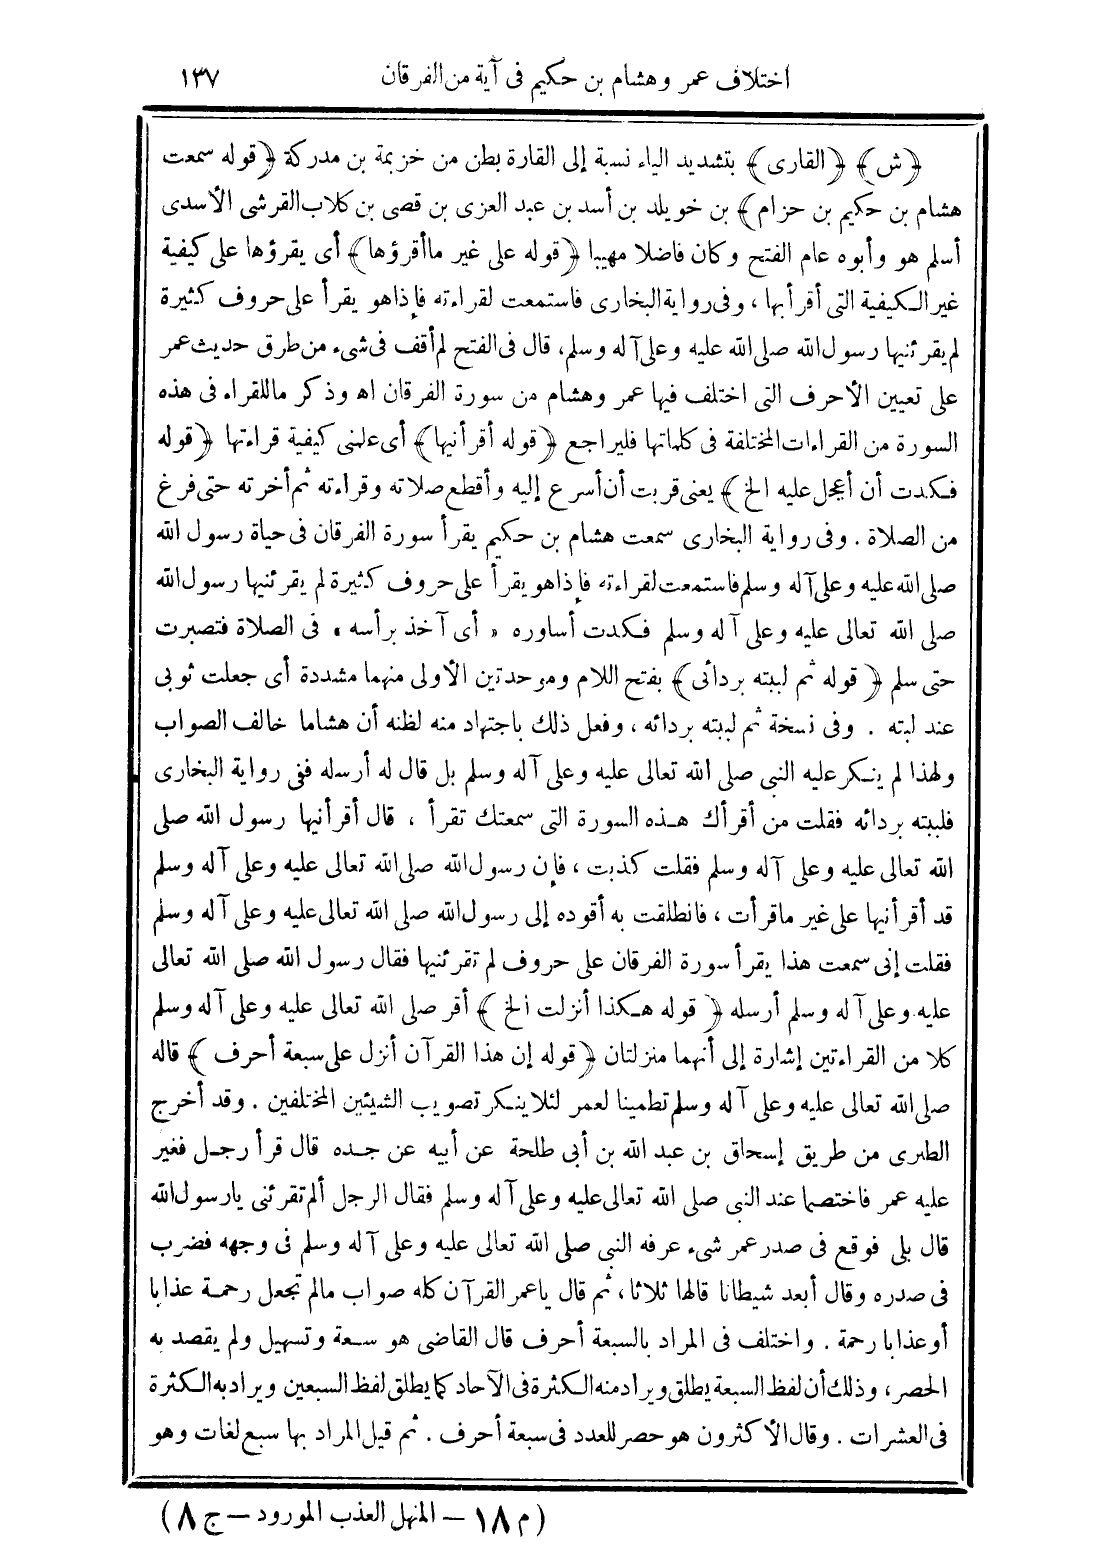 اختلاف عمر وهشام بن حكيم فى آية من الفرقان ١٣٧
﴿ش﴾ ﴿القارى﴾ بتشديد الياء نسبة إلى القارة بطن من خزيمة بن مدركة ﴿قوله سمعت
هشام بن حكيم بن حزام﴾ بن خويلد بن أسد بن عبد العزى بن قصى بن كلاب القرشى الأسدى
أسلم هو وأبوه عام الفتح وكان فاضلا مهيبا ﴿قوله على غير ما أقرؤها﴾ أى يقرؤها على كيفية
غير الكيفية التى أقرأ بها ، وفى رواية البخارى فاستمعت لقراءته فإذا هو يقرأ على حروف كثيرة
لم يقرئنيها رسول الله صلى الله عليه وعلى آله وسلم، قال فى الفتح لم أقف فى شىء من طرق حديث عمر
على تعيين الأحرف التى اختلف فيها عمر وهشام من سورة الفرقان اه وذكر ما للقراء فى هذه
السورة من القراءات المختلفة فى كلماتها فليراجع ﴿قوله أقرأنيها﴾ أى علمنى كيفية قراءتها ﴿قوله
فكدت أن أعجل عليه الخ﴾ يعنى قربت أن أسرع إليه وأقطع صلاته وقراءته ثم أخرته حتى فرغ
من الصلاة . وفى رواية البخارى سمعت هشام بن حكيم يقرأ سورة الفرقان فى حياة رسول الله
صلى الله عليه وعلى آله وسلم فاستمعت لقراءته فإذا هو يقرأ على حروف كثيرة لم يقرئنيها رسول الله
صلى الله تعالى عليه وعلى آله وسلم فكدت أساوره « أى آخذ برأسه » فى الصلاة فتصبرت
حتى سلم ﴿قوله ثم لببته بردائى﴾ بفتح اللام وموحدتين الأولى منهما مشددة أى جعلت ثوبى
عند لبته . وفى نسخة ثم لببته بردائه ، وفعل ذلك باجتهاد منه لظنه أن هشاما خالف الصواب
ولهذا لم ينكر عليه النبى صلى الله تعالى عليه وعلى آله وسلم بل قال له أرسله ففى رواية البخارى
فلببته بردائه فقلت من أقرأك هذه السورة التى سمعتك تقرأ ، قال أقرأنيها رسول الله صلى
الله تعالى عليه وعلى آله وسلم فقلت كذبت ، فإن رسول الله صلى الله تعالى عليه وعلى آله وسلم
قد أقرأنيها على غير ما قرأت ، فانطلقت به أقوده إلى رسول الله صلى الله تعالى عليه وعلى آله وسلم
فقلت إنى سمعت هذا يقرأ سورة الفرقان على حروف لم تقرئنيها فقال رسول الله صلى الله تعالى
عليه وعلى آله وسلم أرسله ﴿قوله هكذا أنزلت الخ﴾ أقر صلى الله تعالى عليه وعلى آله وسلم
كلا من القراءتين إشارة إلى أنهما منزلتان ﴿قوله إن هذا القرآن أنزل على سبعة أحرف﴾ قاله
صلى الله تعالى عليه وعلى آله وسلم تطمينا لعمر لئلا ينكر تصويب الشيئين المختلفين . وقد أخرج
الطبرى من طريق إسحاق بن عبد الله بن أبى طلحة عن أبيه عن جده قال قرأ رجل فغير
عليه عمر فاختصما عند النبى صلى الله تعالى عليه وعلى آله وسلم فقال الرجل ألم تقرئنى يا رسول الله
قال بلى فوقع فى صدر عمر شىء عرفه النبى صلى الله تعالى عليه وعلى آله وسلم فى وجهه فضرب
فى صدره وقال أبعد شيطانا قالها ثلاثا ، ثم قال يا عمر القرآن كله صواب مالم تجعل رحمة عذابا
أو عذابا رحمة . واختلف فى المراد بالسبعة أحرف قال القاضى هو سعة وتسهيل ولم يقصد به
الحصر، وذلك أن لفظ السبعة يطلق ويراد منه الكثرة فى الآحاد كما يطلق لفظ السبعين ويراد به الكثرة
فى العشرات . وقال الأكثرون هو حصر للعدد فى سبعة أحرف . ثم قيل المراد بها سبع لغات وهو
(م ١٨ – المنهل العذب المورود – ج ٨)